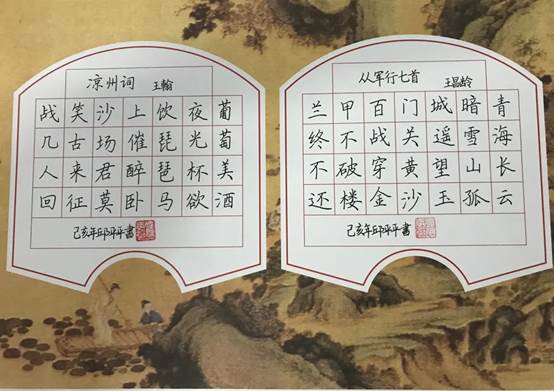 凉州词 王翰
葡萄美酒
夜光杯欲
饮琵琶马
上催醉卧
沙场君莫
笑古来征
战几人回
己亥年邱平平書
从军行七首 王昌龄
青海长云
暗雪山孤
城遥望玉
门关黄沙
百战穿金
甲不破楼
兰终不还
己亥年邱平平書